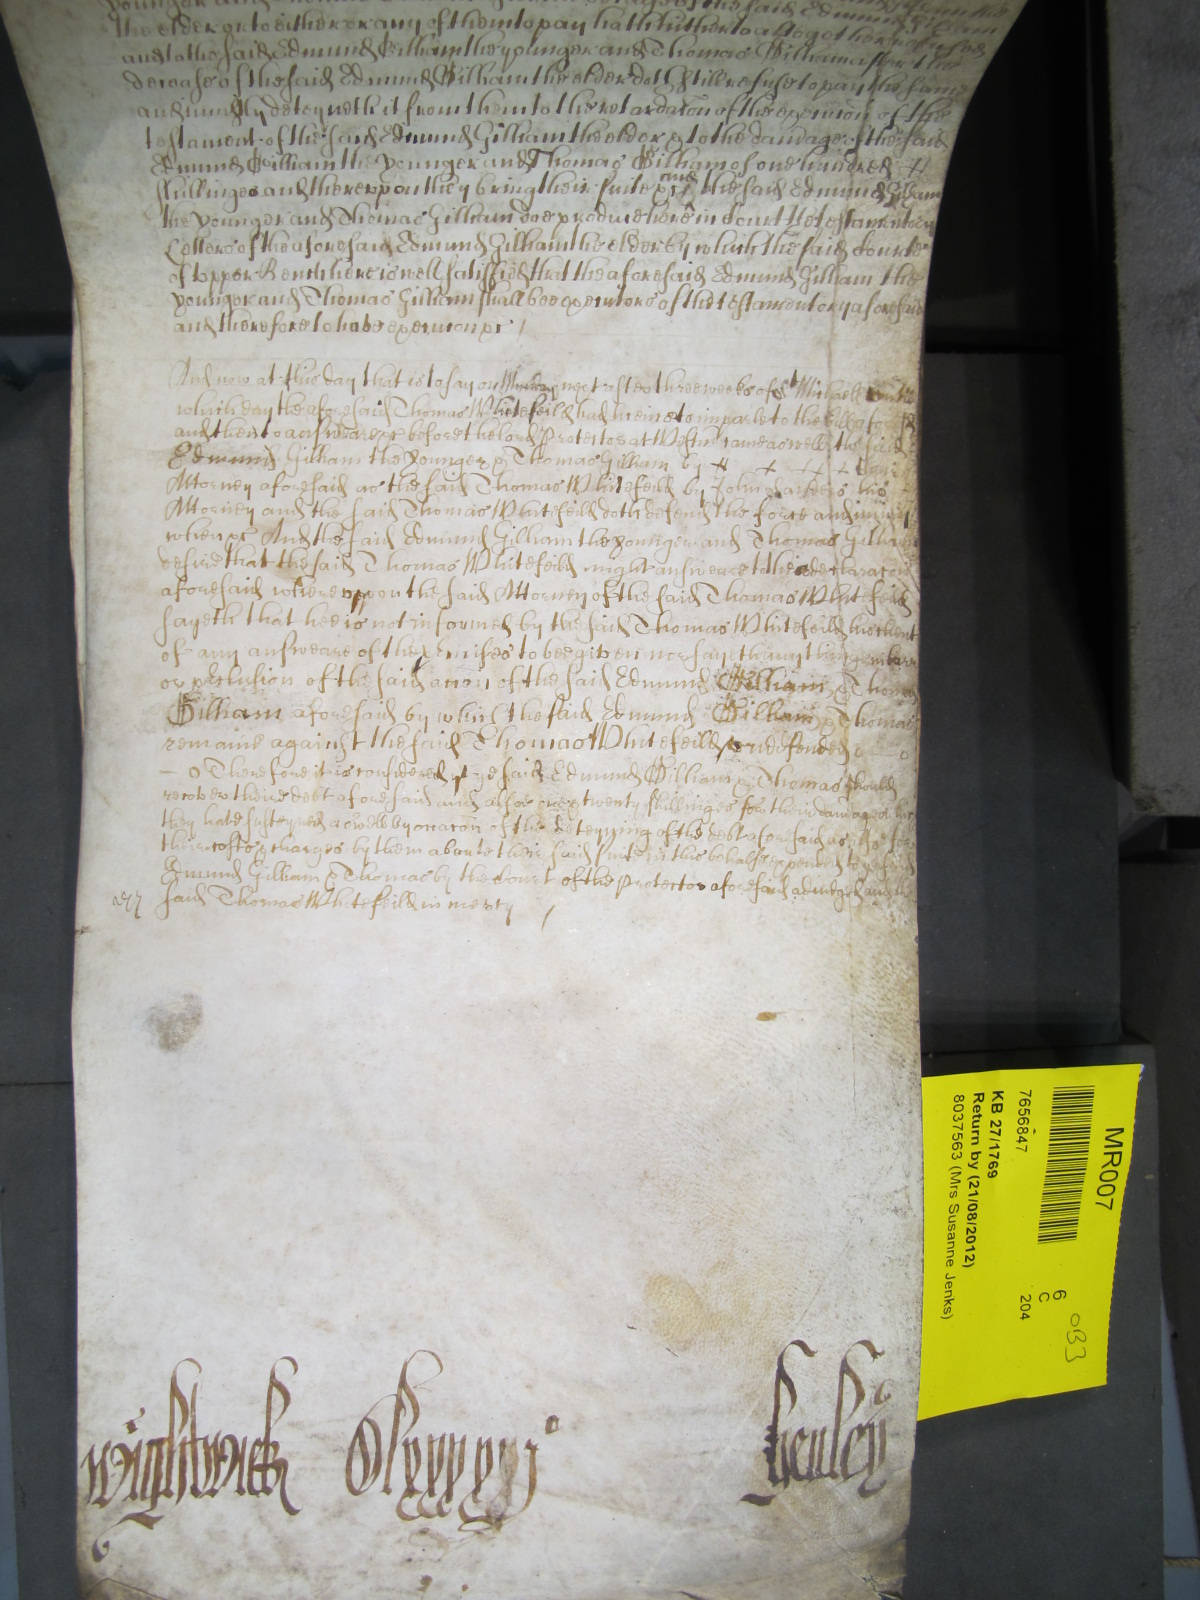 the elder or to either or any of them to pay hath hitherto altogether refused
and to the said Edmund Gilliam the younger and Thomas Gilliam after the
decease of the said Edmund Gilliam the elder doth still refuse to pay the same
and uniustly deteyneth it from them to the retardacon of the execucion of the
testament of the said Edmund Gilliam the elder & to the damage of the said
Edmund Gilliam the younger and Thomas Gilliam of one hundred
shillinges and thereuppon they bring their suite &c and the said Edmund Gilliam
the younger and Thomas Gilliam doe produce here in Court Letters testamentory
Letters of the aforesaid Edmund Gilliam the elder by which the said Courte
of upper Bench here is well satisfied that the aforesaid Edmund Gilliam the
younger and Thomas Gilliam shall bee executors of the testamentory aforesaid
and therefore to have execucion &c /
And now at this day that is to say on next after three weekes of St Michaell untill
which day the aforesaid Thomas Whitefeild had licence to imparle to the bill aforesaid
and then to answeare &c before the lord Protector at Westmr came aswell the said
Edmund Gilliam the younger & Thomas Gilliam by their
Attorney aforesaid as the said Thomas Whitefeild by John his
Attorney and the said Thomas Whitefeild doth defend the force and iniury
when &c And the said Edmund Gilliam the younger and Thomas Gilliam
desire that the said Thomas Whitefeild might answeare to their declaracon
aforesaid whereuppon the said Attorney of the said Thomas Whitefeild
sayeth that hee is not informed by the said Thomas Whitefeild his client
of any answeare of the premises to bee given nor sayeth any thing in barr
or preclusion of the said accion of the said Edmund Gilliam & Thomas
Gilliam aforesaid by which the said Edmund Gilliam & Thomas
remaine against the said Thomas Whitefeild undefended
Therefore it is considered yt ye said Edmund Gilliam & Thomas should
recover theire debt aforesaid and alsoe twenty shillinges for their damages wch
they have susteyned aswell by occacon of the deteyning of the debt aforesaid as also for
their costs & charges by them aboute their said suite in this behalfe expended to ye said
Edmund Gilliam & Thomas by the Court of the Protector aforesaid adiudged and the
said Thomas Whitefeild in mercy /
Wightwick Clxxxxvj Henley
MR007
7656847
KB 27/1769
Return by (21/08/2012)
8037563 (Mrs Susanne Jenks)
6
C
204
OB3